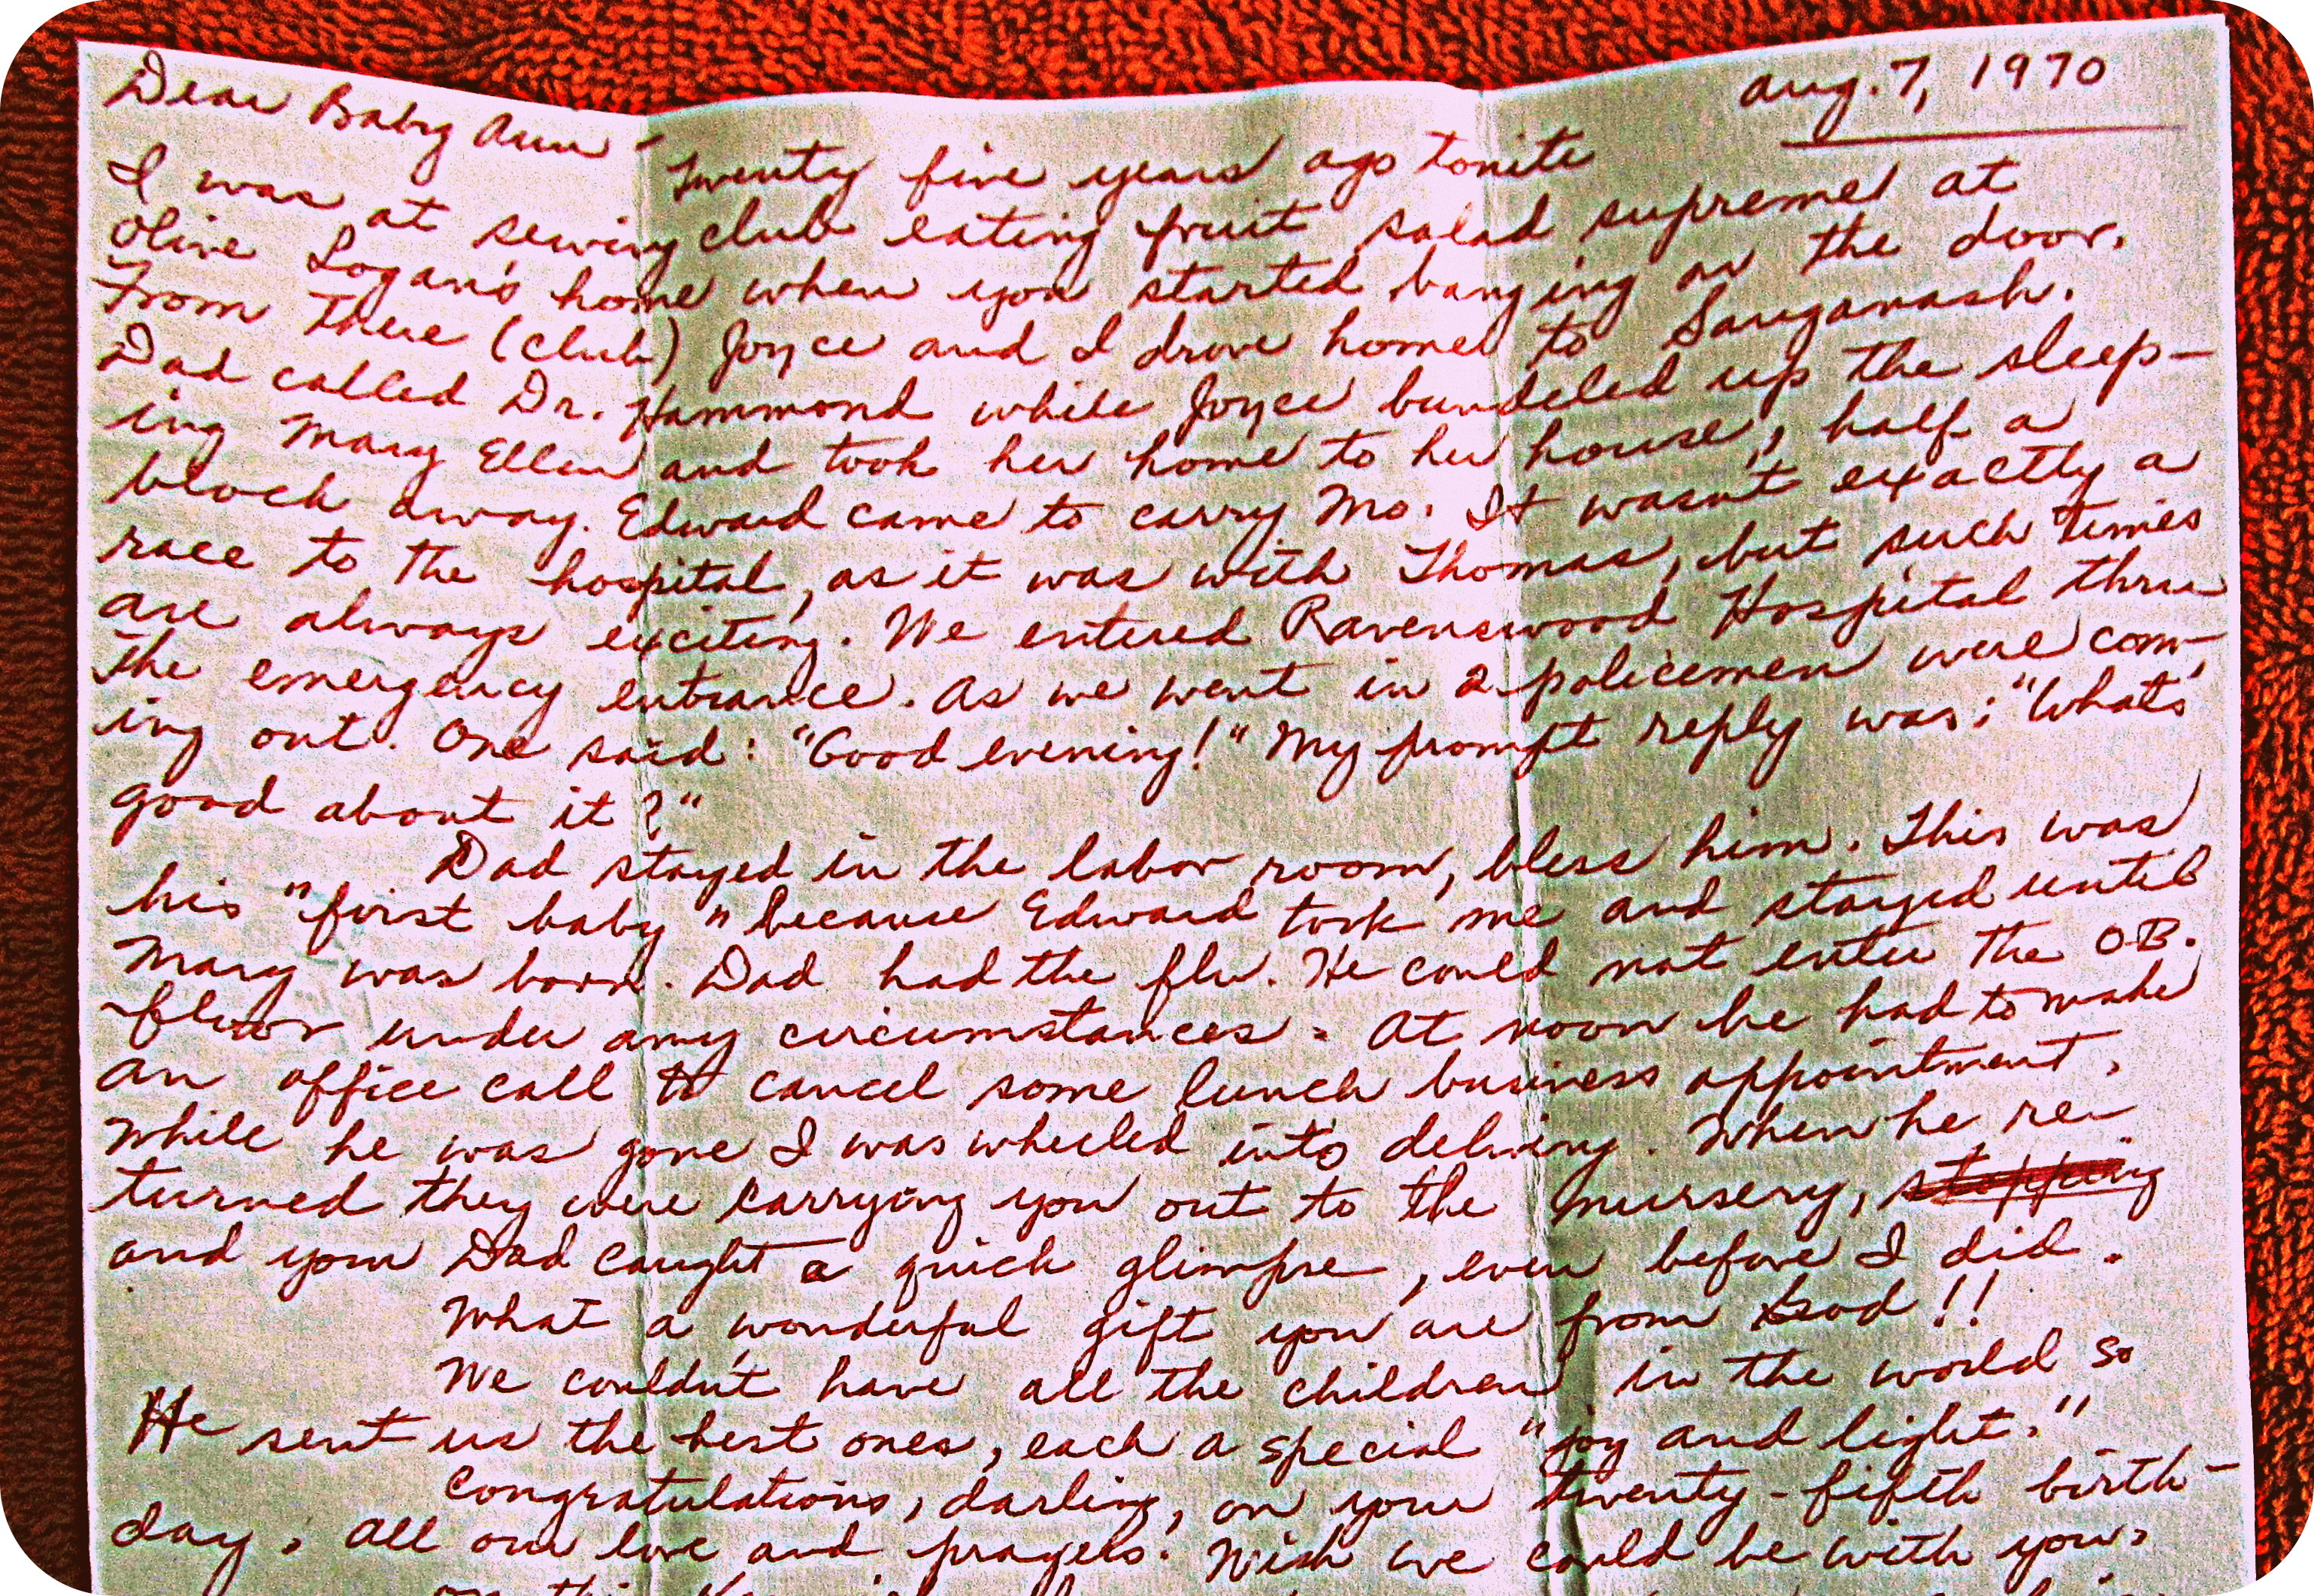 Aug. 7, 1970
Dear Baby Ann -
Twenty five years ago tonite
I was at sewing club eating fruit salad supreme at
Olive Logan's home when you started banging on the door.
From there (club) Joyce and I drove home to Sauganash.
Dad called Dr. Hammond while Joyce bundeled up the sleep-
ing Mary Ellen and took her home to her house, half a
block away. Edward came to carry Mo. It wasn't exactly a
race to the hospital, as it was with Thomas, but such times
are always exciting. We entered Ravenswood Hospital thru
the emergency entrance. As we went in 2 policemen were com-
ing out. One said: "Good evening!" My prompt reply was: "What's
good about it?"
Dad stayed in the labor room, bless him. This was
his "first baby" because Edward took me and stayed until
Mary was born. Dad had the flu. He could not enter the O.B.
floor under any circumstances. At noon he had to make
an office call to cancel some lunch business appointment.
While he was gone I was wheeled into delivery. When he re-
turned they were carrying you out to the nursery, stopping
and your Dad caught a quick glimpse, even before I did.
What a wonderful gift you are from God!!
We couldn't have all the children in the world so
He sent us the best ones, each a special "joy and light."
Congratulations, darling, on your twenty-fifth birth-
day. All our love and prayers. Wish we could be with you,